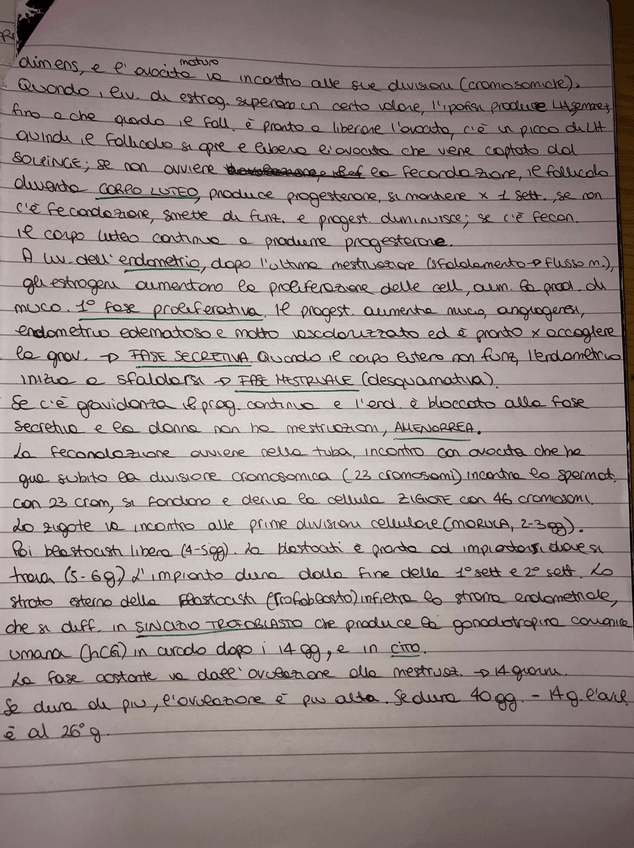 dimens, e l'ovocita maturo va incontro alle sue divisioni (cromosomiche).
Quando i liv. di estrog. superano un certo valore, l'ipofisi produce LH sempre,
fino a che quando il foll. è pronto a liberare l'ovocita, c'è un picco di LH
quindi il follicolo si apre e libera l'ovocita che viene captato dal
SALPINGE; se non avviene la fecondazione, il follicolo
diventa CORPO LUTEO, produce progesterone, si mantiene x 1 sett, se non
c'è fecondazione, smette di funz. e progest. diminuisce; se c'è fecon.
il corpo luteo continua a produrre progesterone.
A liv. dell'endometrio, dopo l'ultima mestruazione (sfaldamento → flusso m.),
gli estrogeni aumentano la proliferazione delle cell, aum. la prod. di
muco. 1° fase proliferativa. Il progest. aumenta muco, angiogenesi,
endometrio edematoso e molto vascolarizzato ed è pronto x accogliere
la grav. → FASE SECRETIVA Quando il corpo luteo non funz, l'endometrio
inizia a sfaldarsi → FASE MESTRUALE (desquamativa).
Se c'è gravidanza il prog. continua e l'end. è bloccato alla fase
secretiva e la donna non ha mestruazioni, AMENORREA.
La fecondazione avviene nella tuba, incontro con ovocita che ha
già subito la divisione cromosomica (23 cromosomi) incontra lo spermat.
con 23 crom, si fondono e deriva la cellula ZIGOTE con 46 cromosomi.
Lo zigote va incontro alle prime divisioni cellulare (MORULA, 2-3gg).
Poi blastocisti libera (4-5gg). La blastocisti è pronta ad impiantarsi dove si
trova (5-6g) L'impianto dura dalla fine della 1° sett e 2° sett. Lo
strato esterno della Blastocisti (Trofoblasto) infiltra lo stroma endometriale,
che si diff. in SINCIZIO TROFOBLASTO che produce la gonadotropina corionica
umana (hCG) in circolo dopo i 14 gg, e in CITO.
La fase costante va dall'ovulazione alla mestruaz. → 14 giorni.
Se dura di più, l'ovulazione è più alta. Se dura 40gg. - 14g. l'ovul.
è al 26° g.